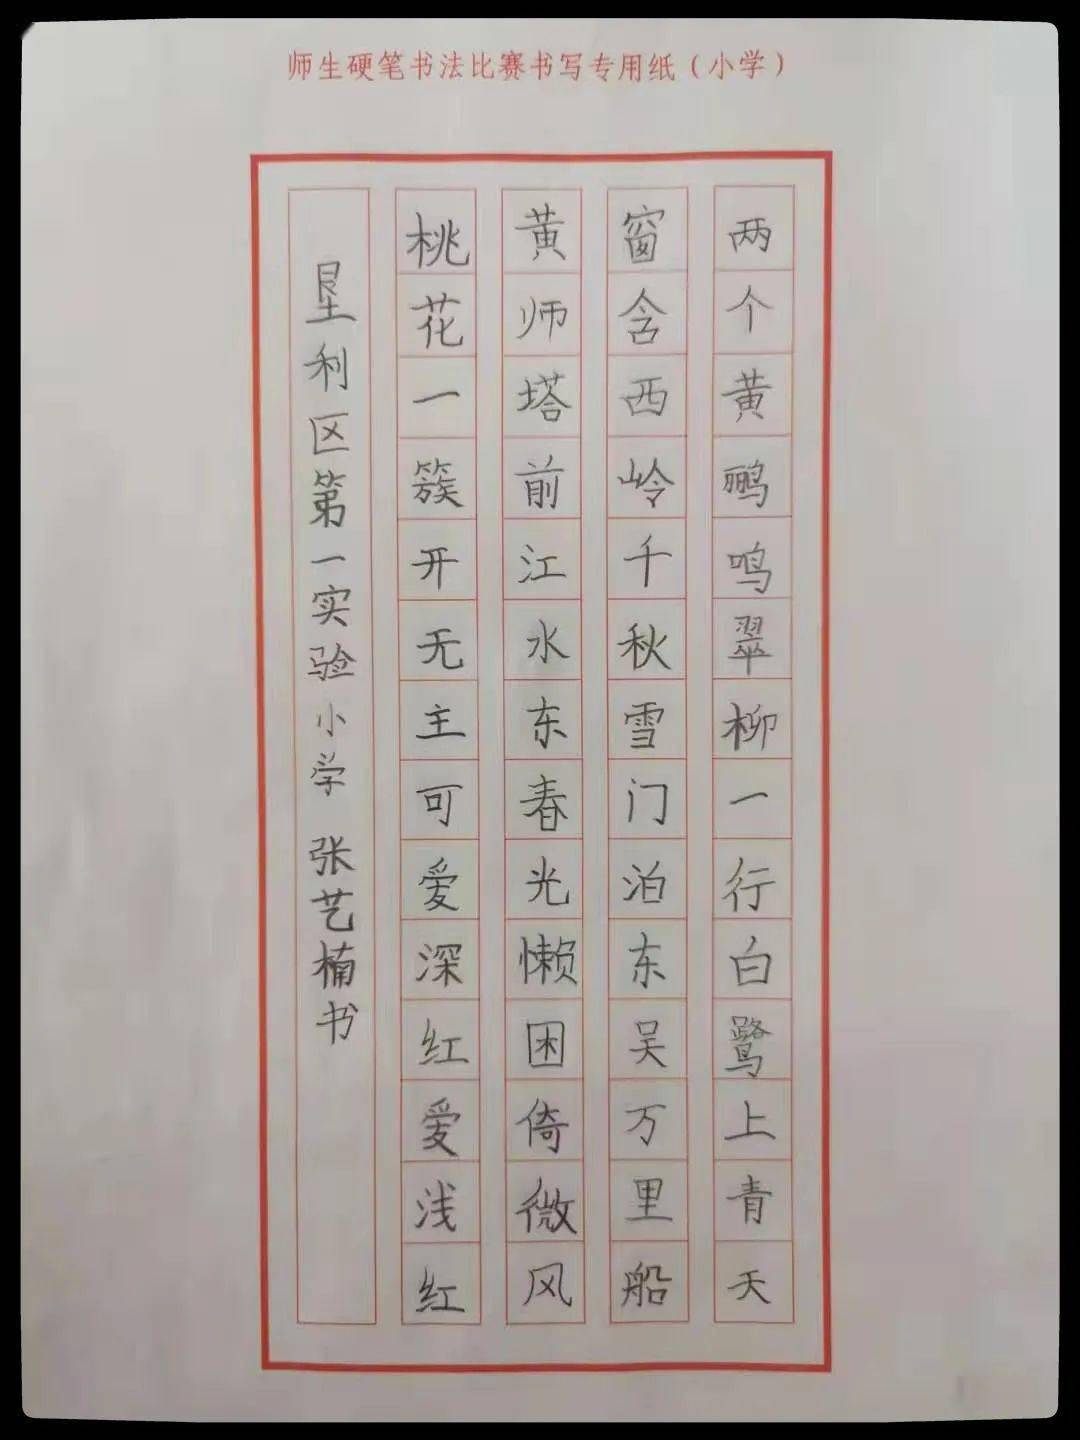 师生硬笔书法比赛书写专用纸（小学）
两个黄鹂鸣翠柳一行白鹭上青天
窗含西岭千秋雪门泊东吴万里船
黄师塔前江水东春光懒困倚微风
桃花一簇开无主可爱深红爱浅红
垦利区第一实验小学 张艺楠书